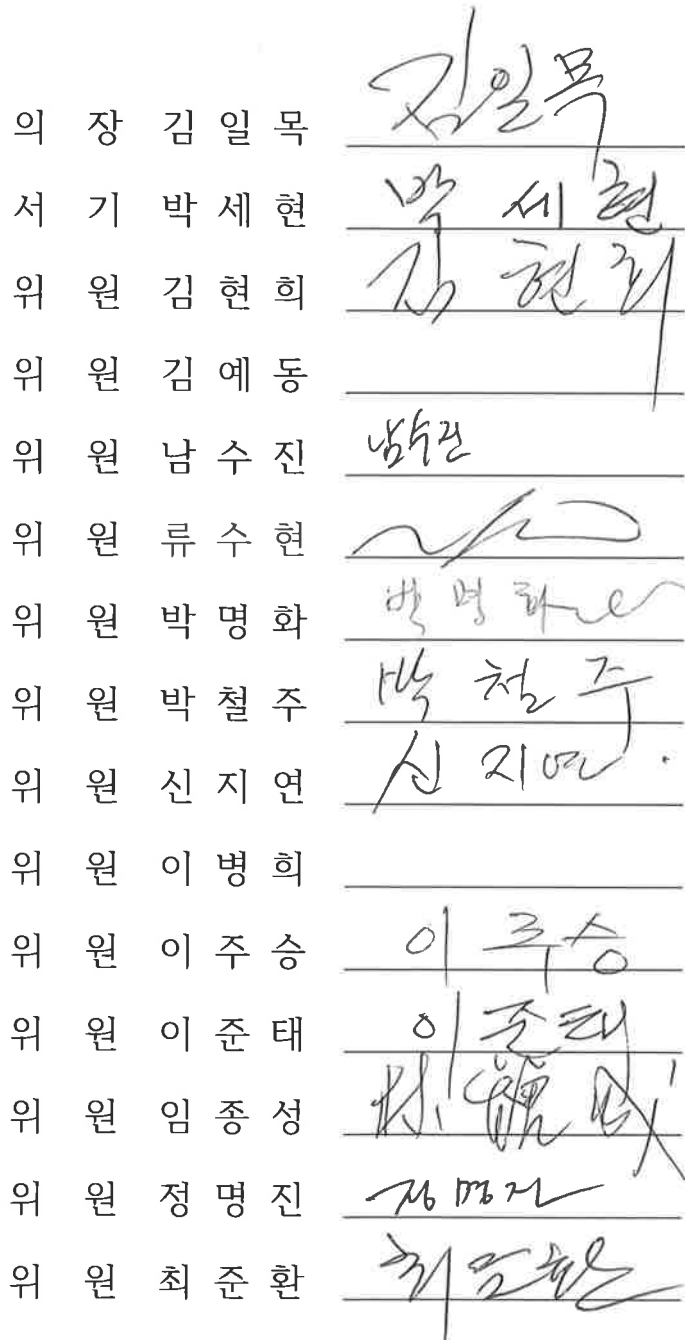 의 장 김 일 목 김일목
서 기 박 세 현 박 세 현
위 원 김 현 희 김 현 희
위 원 김 예 동
위 원 남 수 진 남수진
위 원 류 수 현
위 원 박 명 화 박 명 화
위 원 박 철 주 박 철 주
위 원 신 지 연 신 지 연
위 원 이 병 희
위 원 이 주 승 이 주 승
위 원 이 준 태 이 준 태
위 원 임 종 성 林
위 원 정 명 진 정명진
위 원 최 준 환 최준환